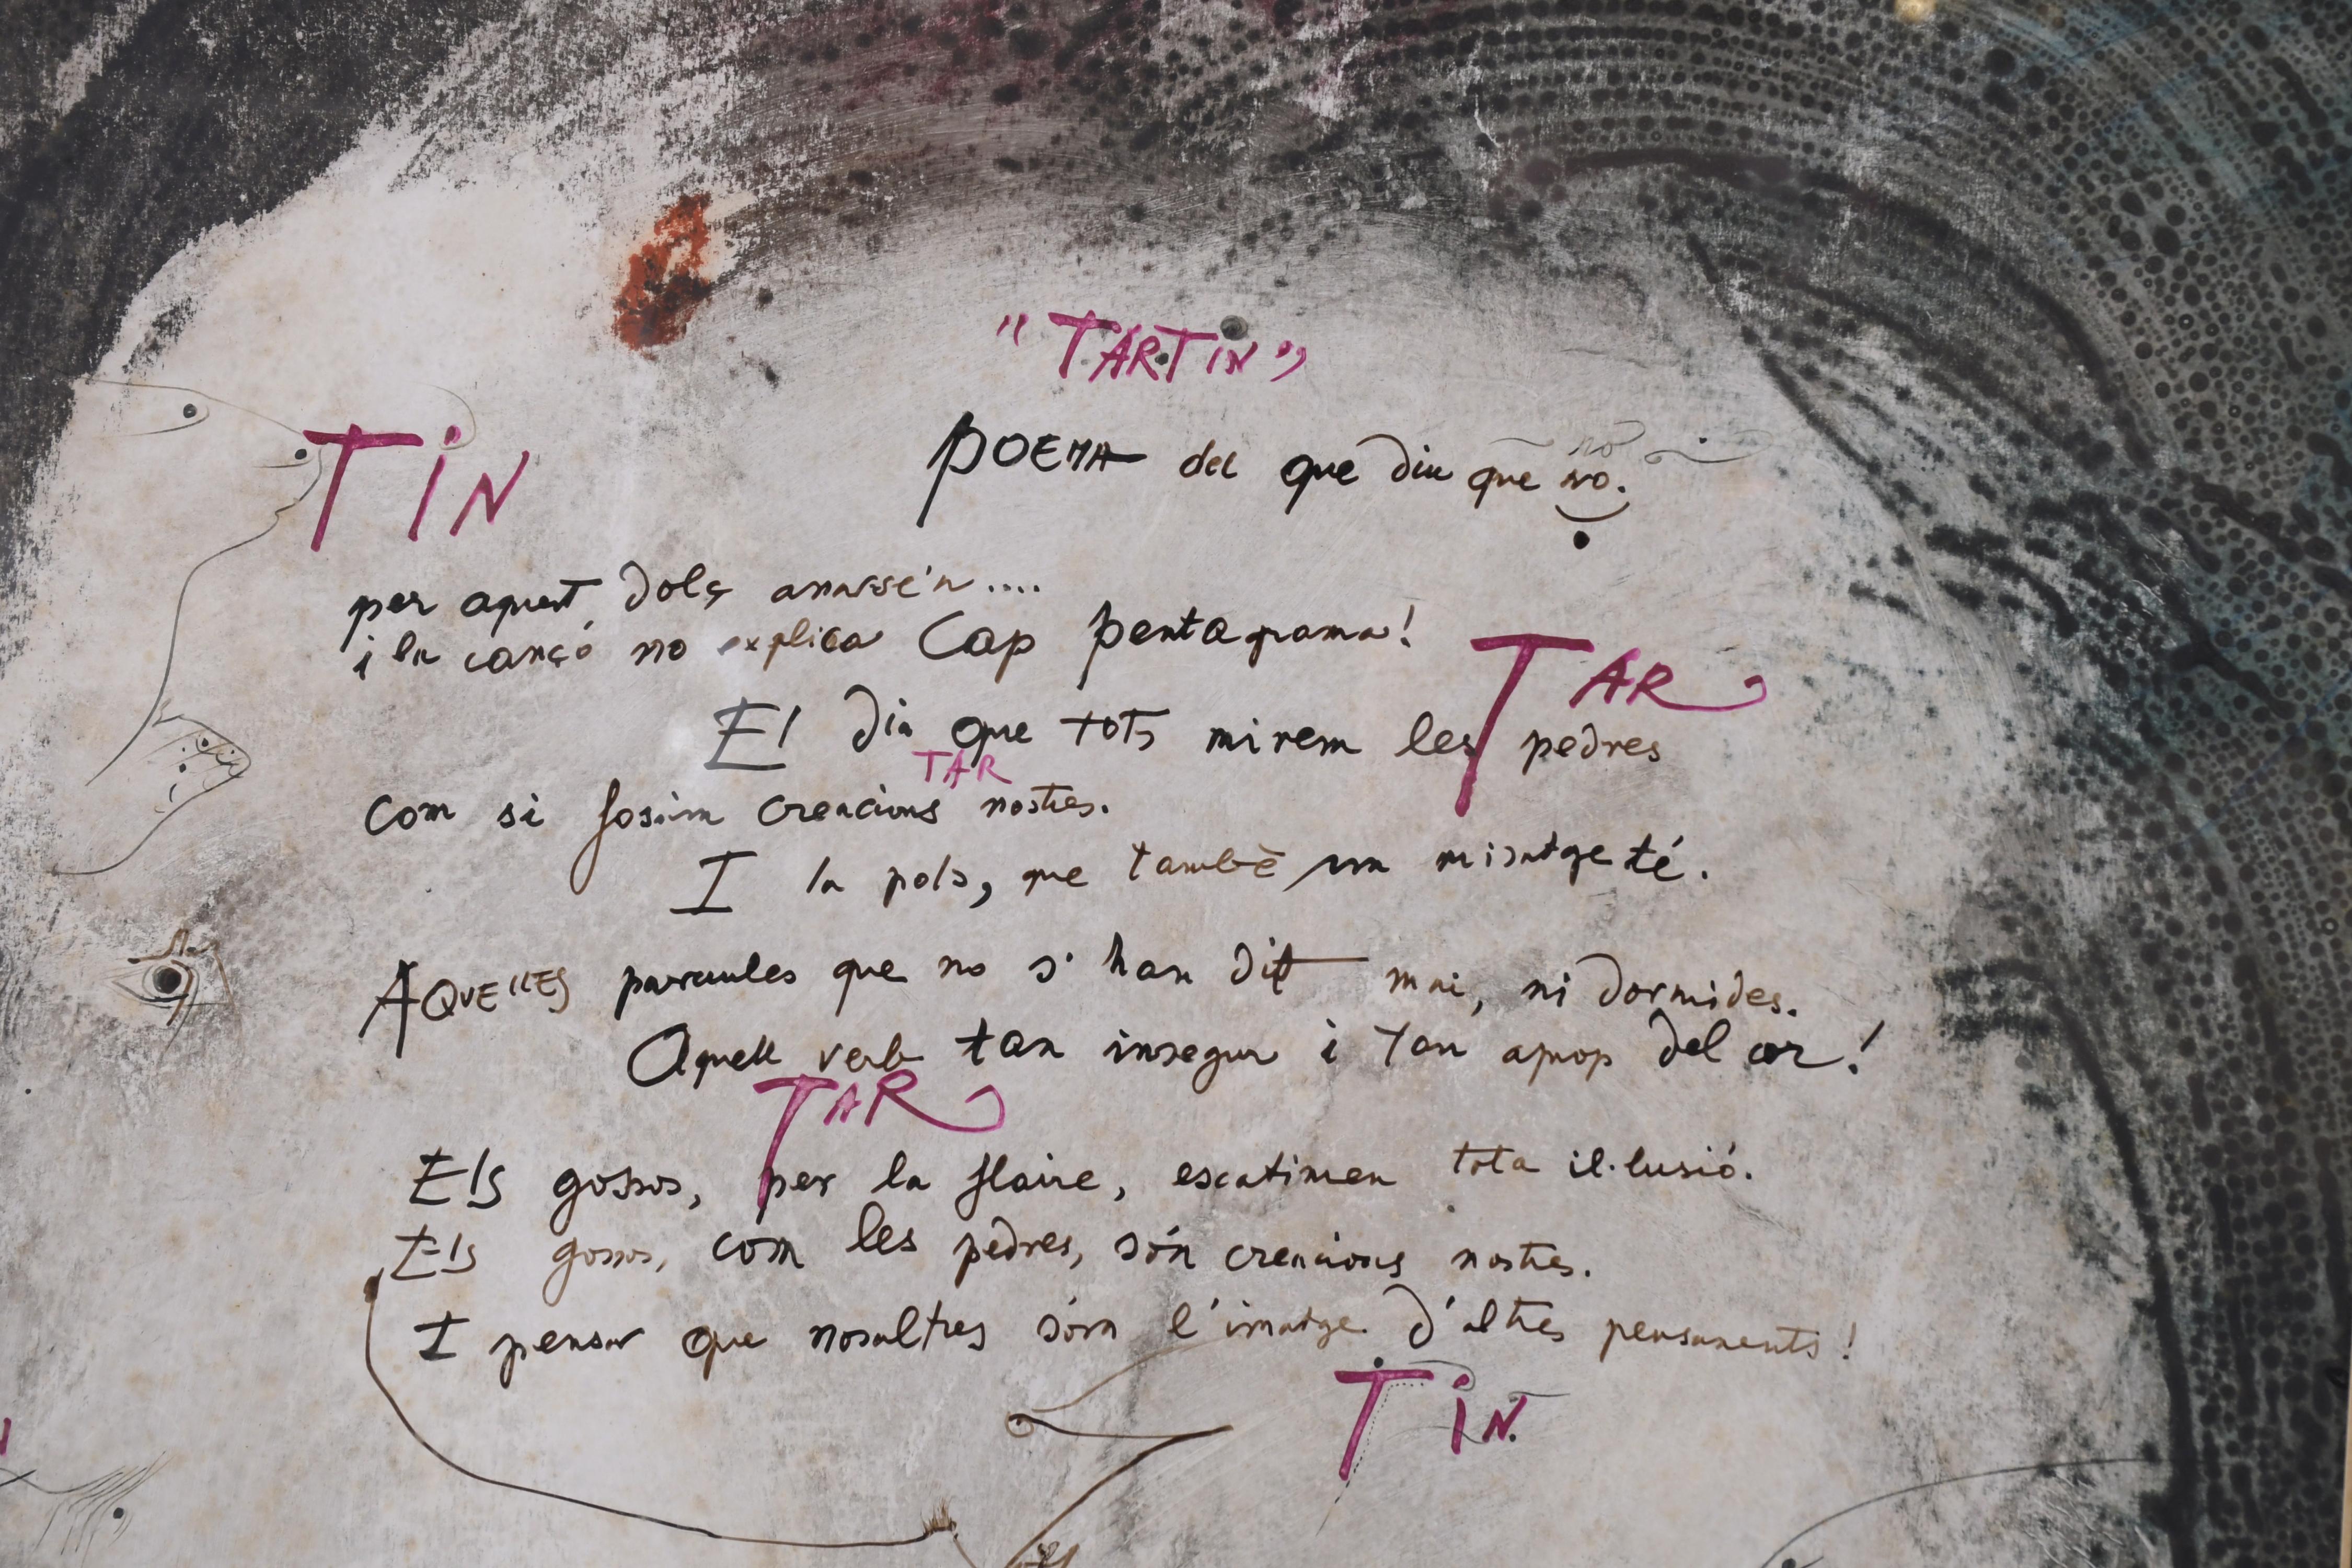 "TARTIN"
TIN
POEMA del que diu que no.
no
per aquest dolç anarsé'n....
i la cançó no explica Cap pentagrama!
TAR
El dia que tots mirem les pedres
TAR
com si fosim creacions nostres.
I la pols, que també un misatge té.
AQUELLES paraules que no s'han dit mai, ni dormides.
Aquell verb tan insegur i tan aprop del cor!
TAR
Els gossos, per la flaire, escatimen tota il·lusió.
Els gossos, com les pedres, són creacions nostres.
I pensar que nosaltres sóm l'imatge d'altres pensaments!
TIN